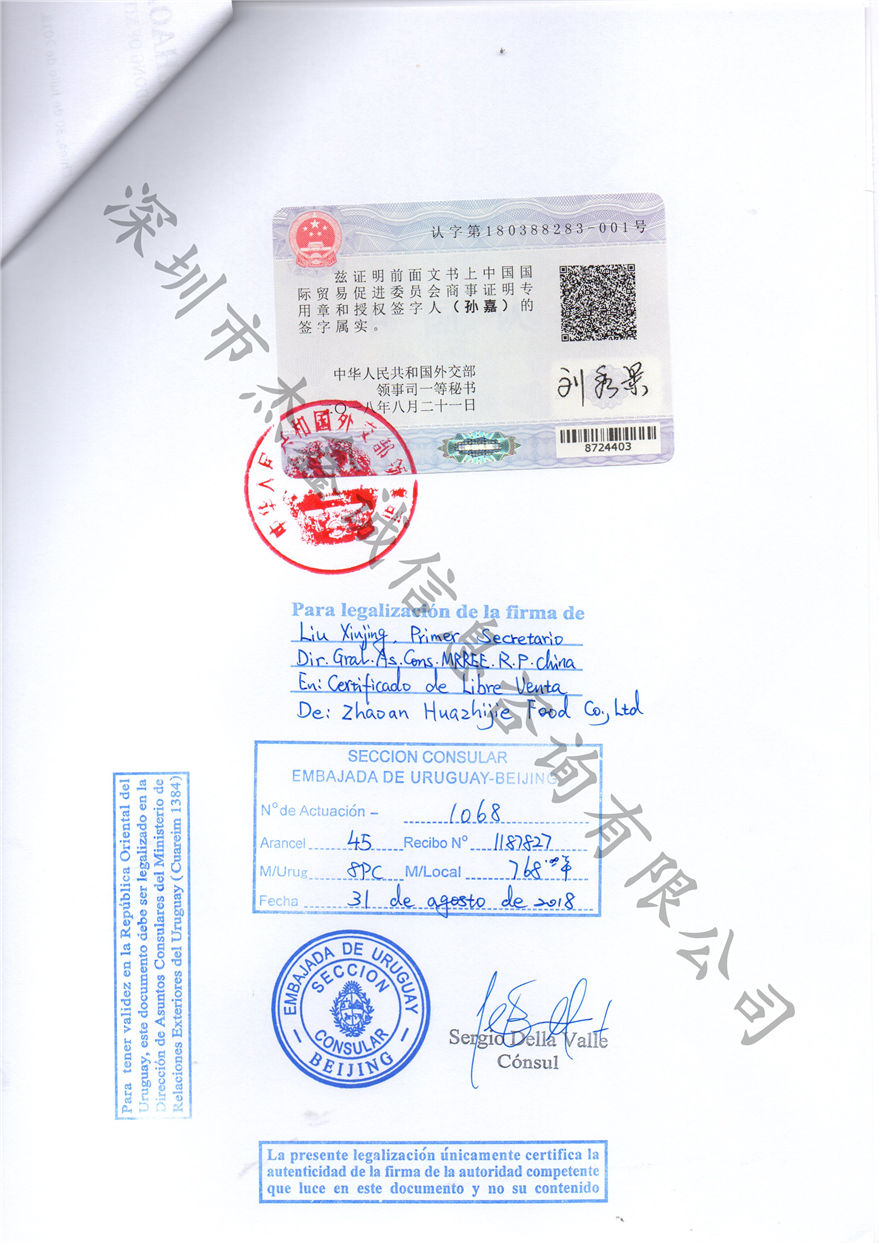 认字第180388283-001号
兹证明前面文书上中国国
际贸易促进委员会商事证明专
用章和授权签字人（孙嘉）的
签字属实。
中华人民共和国外交部
领事司一等秘书
二〇一八年八月二十一日
8724403
Para legalización de la firma de
Liu Xinjing, Primer Secretario
Dir. Gral. As. Cons. MRREE. R.P. China
En: Certificado de Libre Venta
De: Zhaoan Huazhijie Food Co., Ltd
SECCION CONSULAR
EMBAJADA DE URUGUAY-BEIJING
Nº de Actuación – 1068
Arancel 45 Recibo Nº 1187827
M/Urug 8PC M/Local 768
Fecha 31 de agosto de 2018
EMBAJADA DE URUGUAY
SECCION
CONSULAR
– BEIJING –
Sergio Della Valle
Cónsul
Para tener validez en la República Oriental del
Uruguay, este documento debe ser legalizado en la
Dirección de Asuntos Consulares del Ministerio de
Relaciones Exteriores del Uruguay ( Cuareim 1384)
La presente legalización únicamente certifica la
autenticidad de la firma de la autoridad competente
que luce en este documento y no su contenido